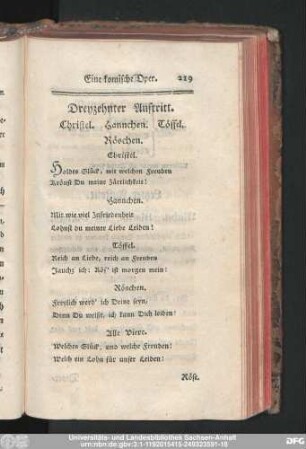 Eine komische Oper. 219
Dreyzehnter Auftritt.
Christel. Hannchen. Töffel.
Röschen.
Christel.
Holdes Glück, mit welchen Freuden
Krönst Du meine Zärtlichkeit!
Hannchen.
Mit wie viel Zufriedenheit
Lohnst du meiner Liebe Leiden!
Töffel.
Reich an Liebe, reich an Freuden
Jauchz ich: Rös' ist morgen mein!
Röschen.
Freylich werd' ich Deine seyn,
Denn Du weißt, ich kann Dich leiden!
Alle Viere.
Welches Glück, und welche Freuden!
Welch ein Lohn für unser Leiden!
Rösi.
Universitäts- und Landesbibliothek Sachsen-Anhalt
urn:nbn:de:gbv:3:1-1192015415-249323591-19
DFG